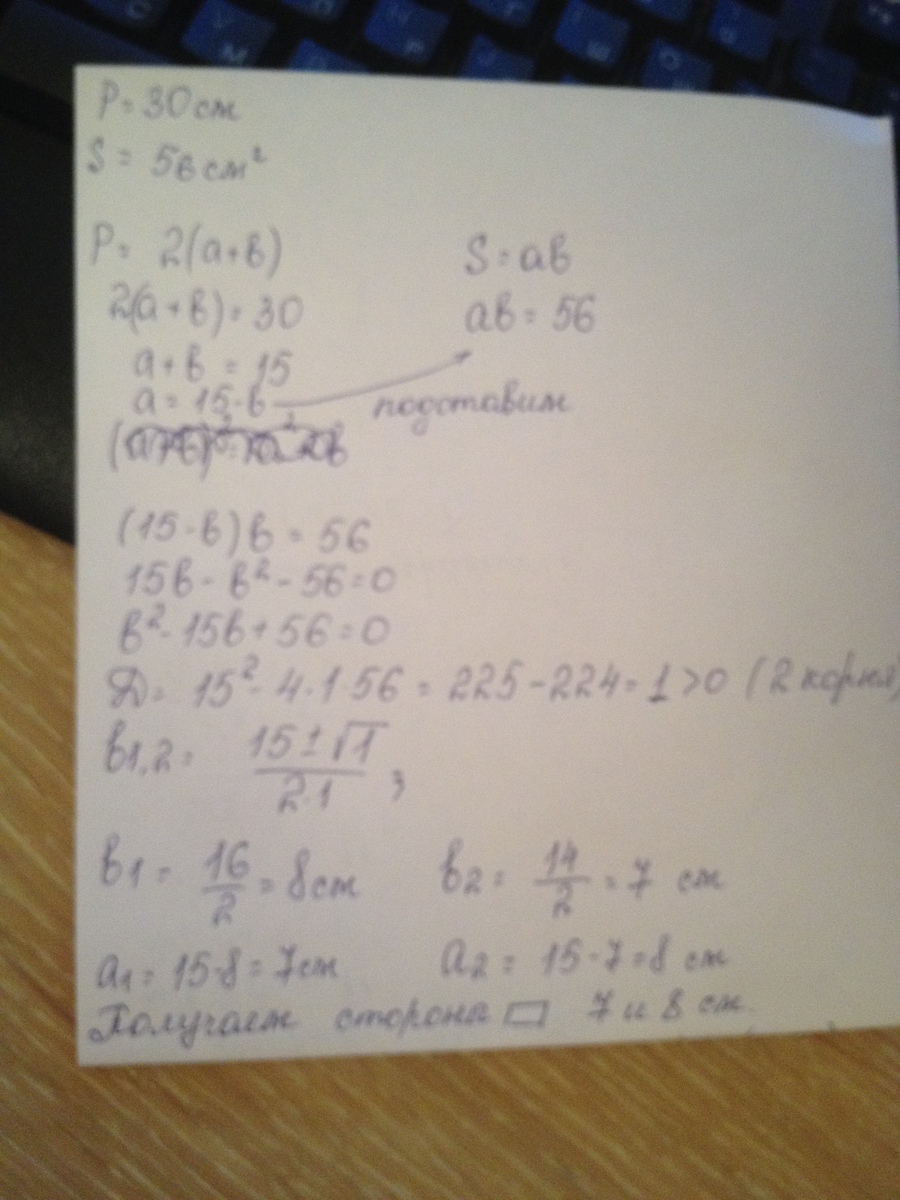 P = 30 см
S = 56 см²
P = 2(a+в)
S = ав
2(a+в) = 30
ав = 56
a+в = 15
a = 15-в
подставим
(15-в)в = 56
15в - в² - 56 = 0
в² - 15в + 56 = 0
D = 15² - 4·1·56 = 225 - 224 = 1 > 0 (2 корня)
в1,2 = (15 ± √1)/(2·1) ;
в1 = 16/2 = 8 см
в2 = 14/2 = 7 см
a1 = 15-8 = 7 см
a2 = 15-7 = 8 см
Получаем сторона ▭ 7 и 8 см.